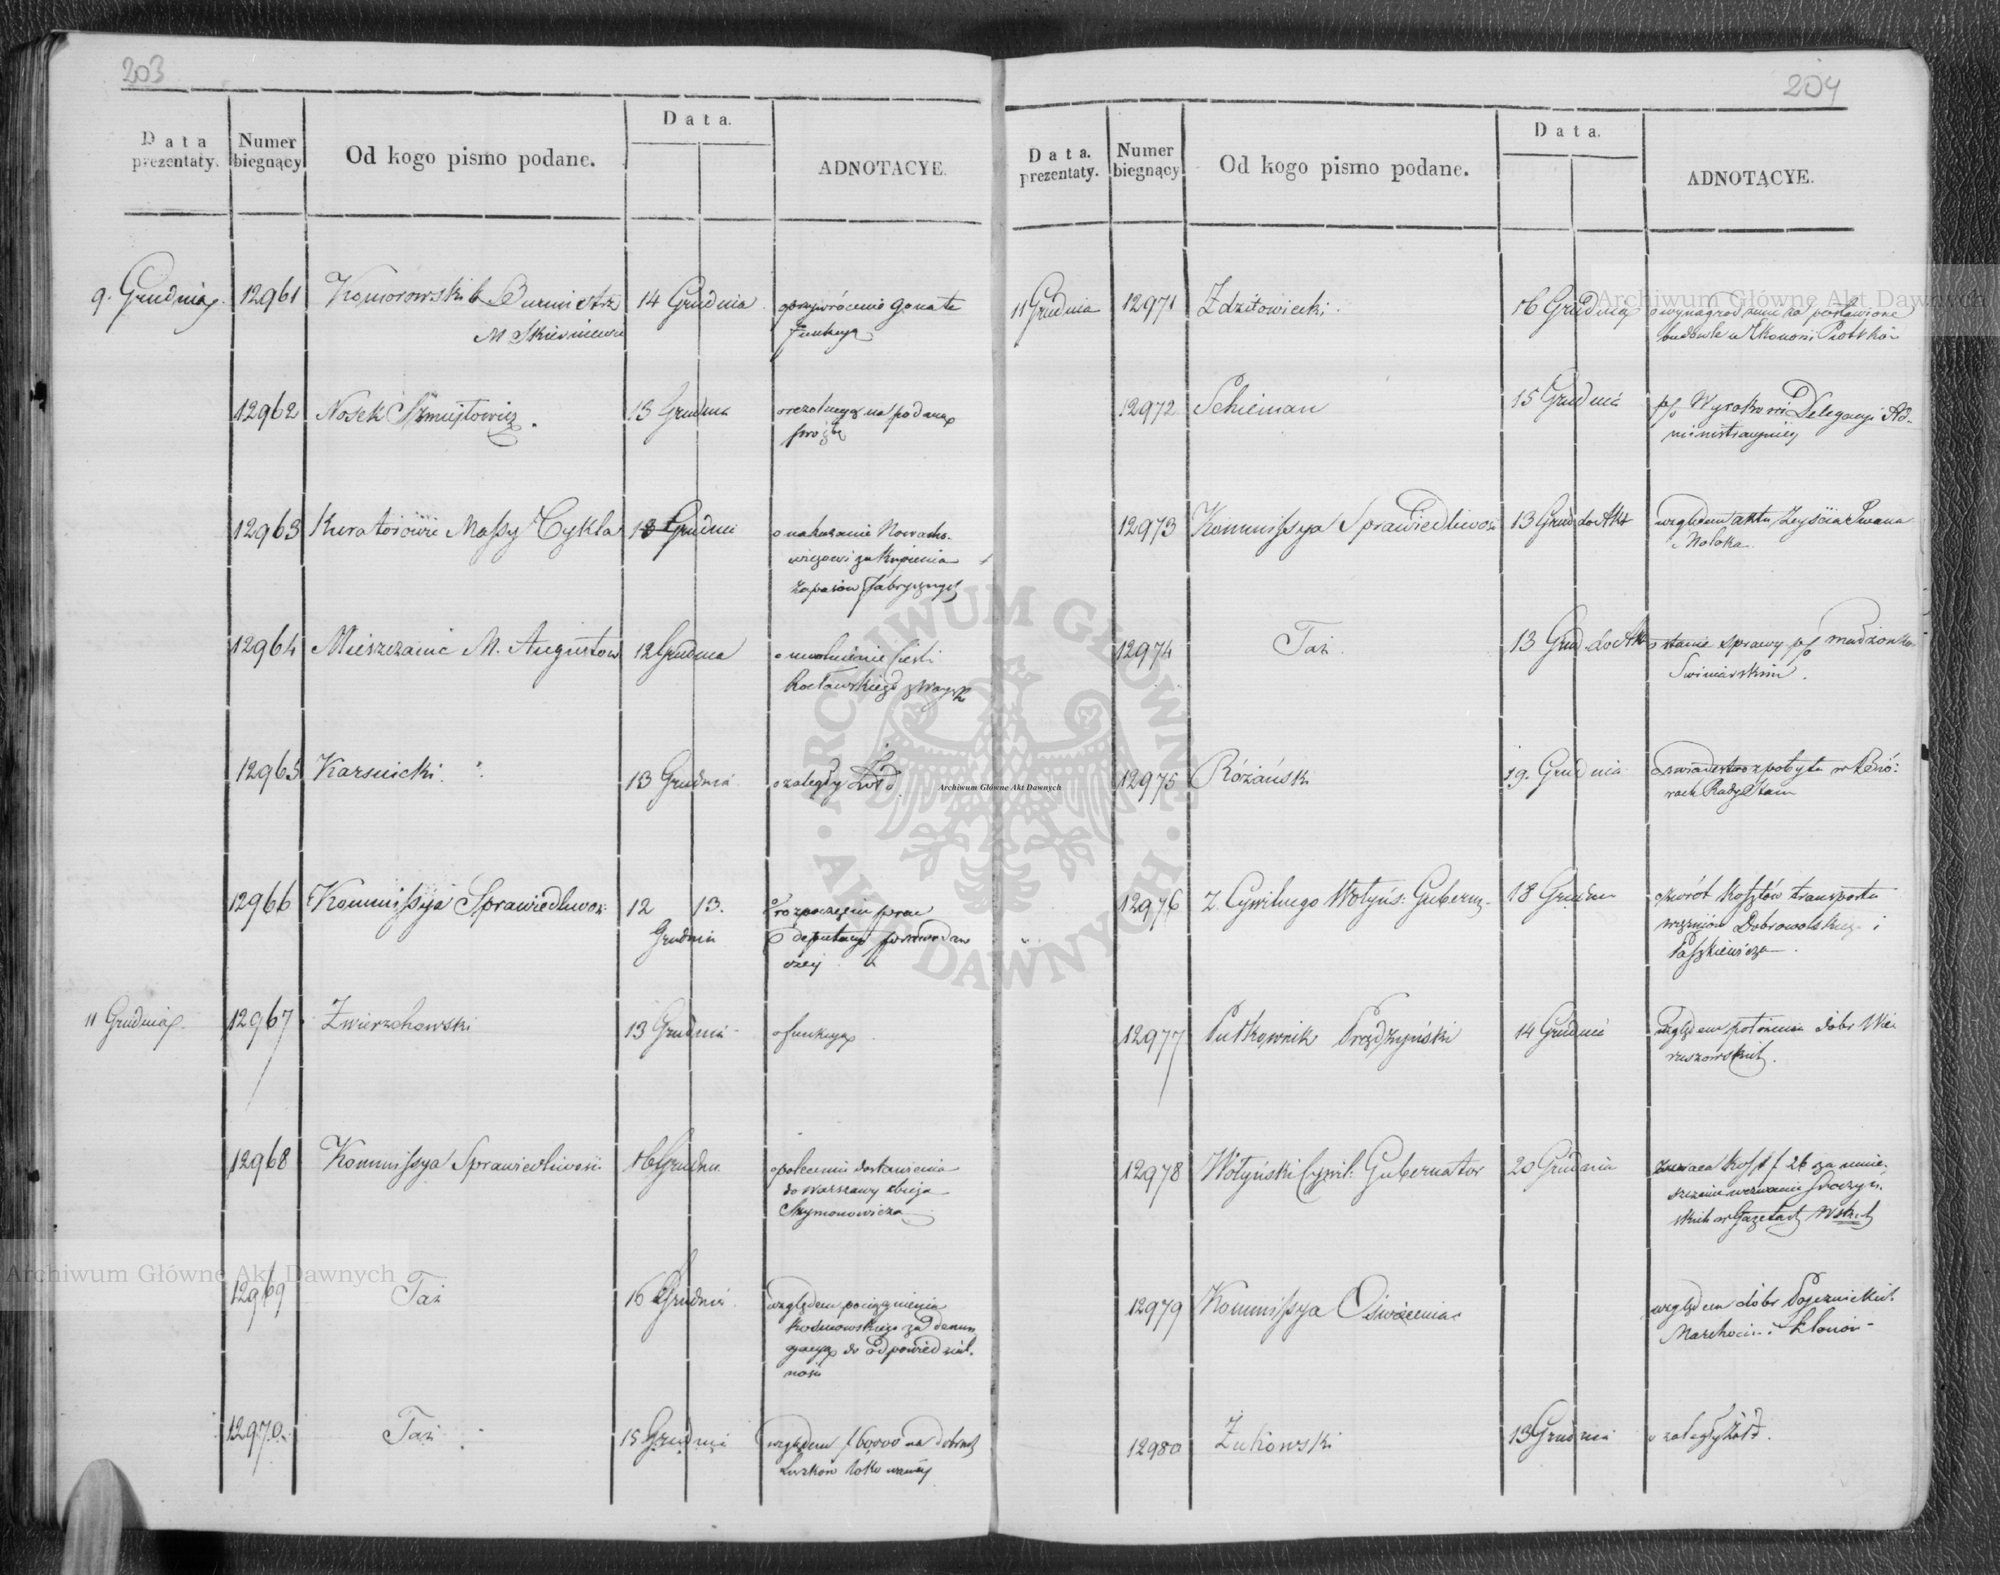 203
Data prezentaty.
Numer biegnący
Od kogo pismo podane.
Data.
ADNOTACYE.
9. Grudnia
12961
Komorowski b. Burmistrz
M Skierniewic
14 Grudnia
o przywrócenie go na te
funkcyą
12962
Nosek Szmujłowicz.
13 Grudnia
o rezolucyą na podaną
proźbę
12963
Kuratorowie Massy Cykla
13 Grudnia
o nakazanie
zakupienia
zapasów fabrycznych
12964
Mieszczanie M. Augustow
12 Grudnia
o uwolnienie
12965
Karsnicki
13 Grudnia
o zaległy żołd
12966
Kommissyja Sprawiedliwos:
12 13.
Grudnia
o rozpoczęciu prac
deputacyi prawodaw
czej
11 Grudnia
12967
Zwierzchowski
13 Grudnia
o funkcyą
12968
Kommissya Sprawiedliwości
16 Grudnia
o polecenie dostawienia
do Warszawy
Szymonowicza
12969
Taż
16 Grudnia
względem pociągnienia
za denun
cyacyą do odpowiedzial.
ności
12970.
Taż
15 Grudnia
względem f 60,000 na dobrach
204
Data. prezentaty.
Numer biegnący
Od kogo pismo podane.
Data.
ADNOTACYE.
11 Grudnia
12971
Zdzitowiecki
16 Grudnia
o wynagrodzenie za postawione
budowle w Ekonomi Piotrków
12972
Schieman
15 Grudnia
p/o Wyrokowi Delegacyi Ad-
ministracyjnej
12973
Kommissya Sprawiedliwoś
13 Grud do Akt
względem aktu zejścia Iwana
12974
Taż
13 Grud. do Akt
o stanie sprawy p/o
Swiniarskim.
12975
Różański
19. Grudnia
o swiadectwo z pobytu w Bió-
rach Rady Stanu
12976
Z. Cywilnego Wołyńs: Gubern.
18 Grudnia
o zwrót kosztów transportu
więzniów Dobrowolskiego i
Paszkiewicza
12977
Pułkownik Prądzyński
14 Grudnia
względem położenia dóbr Wie
ruszowskich.
12978
Wołyński Cywil: Gubernator
20 Grudnia
zwraca koszt f 26 za umie-
szczenie wezwania
w Gazetach
12979
Kommissya Oświecenia
względem dóbr
12980
Żukowski
13 Grudnia
o zaległy żołd.
Archiwum Główne Akt Dawnych
Archiwum Główne Akt Dawnych
Archiwum Główne Akt Dawnych
ARCHIWUM GŁÓWNE AKT DAWNYCH